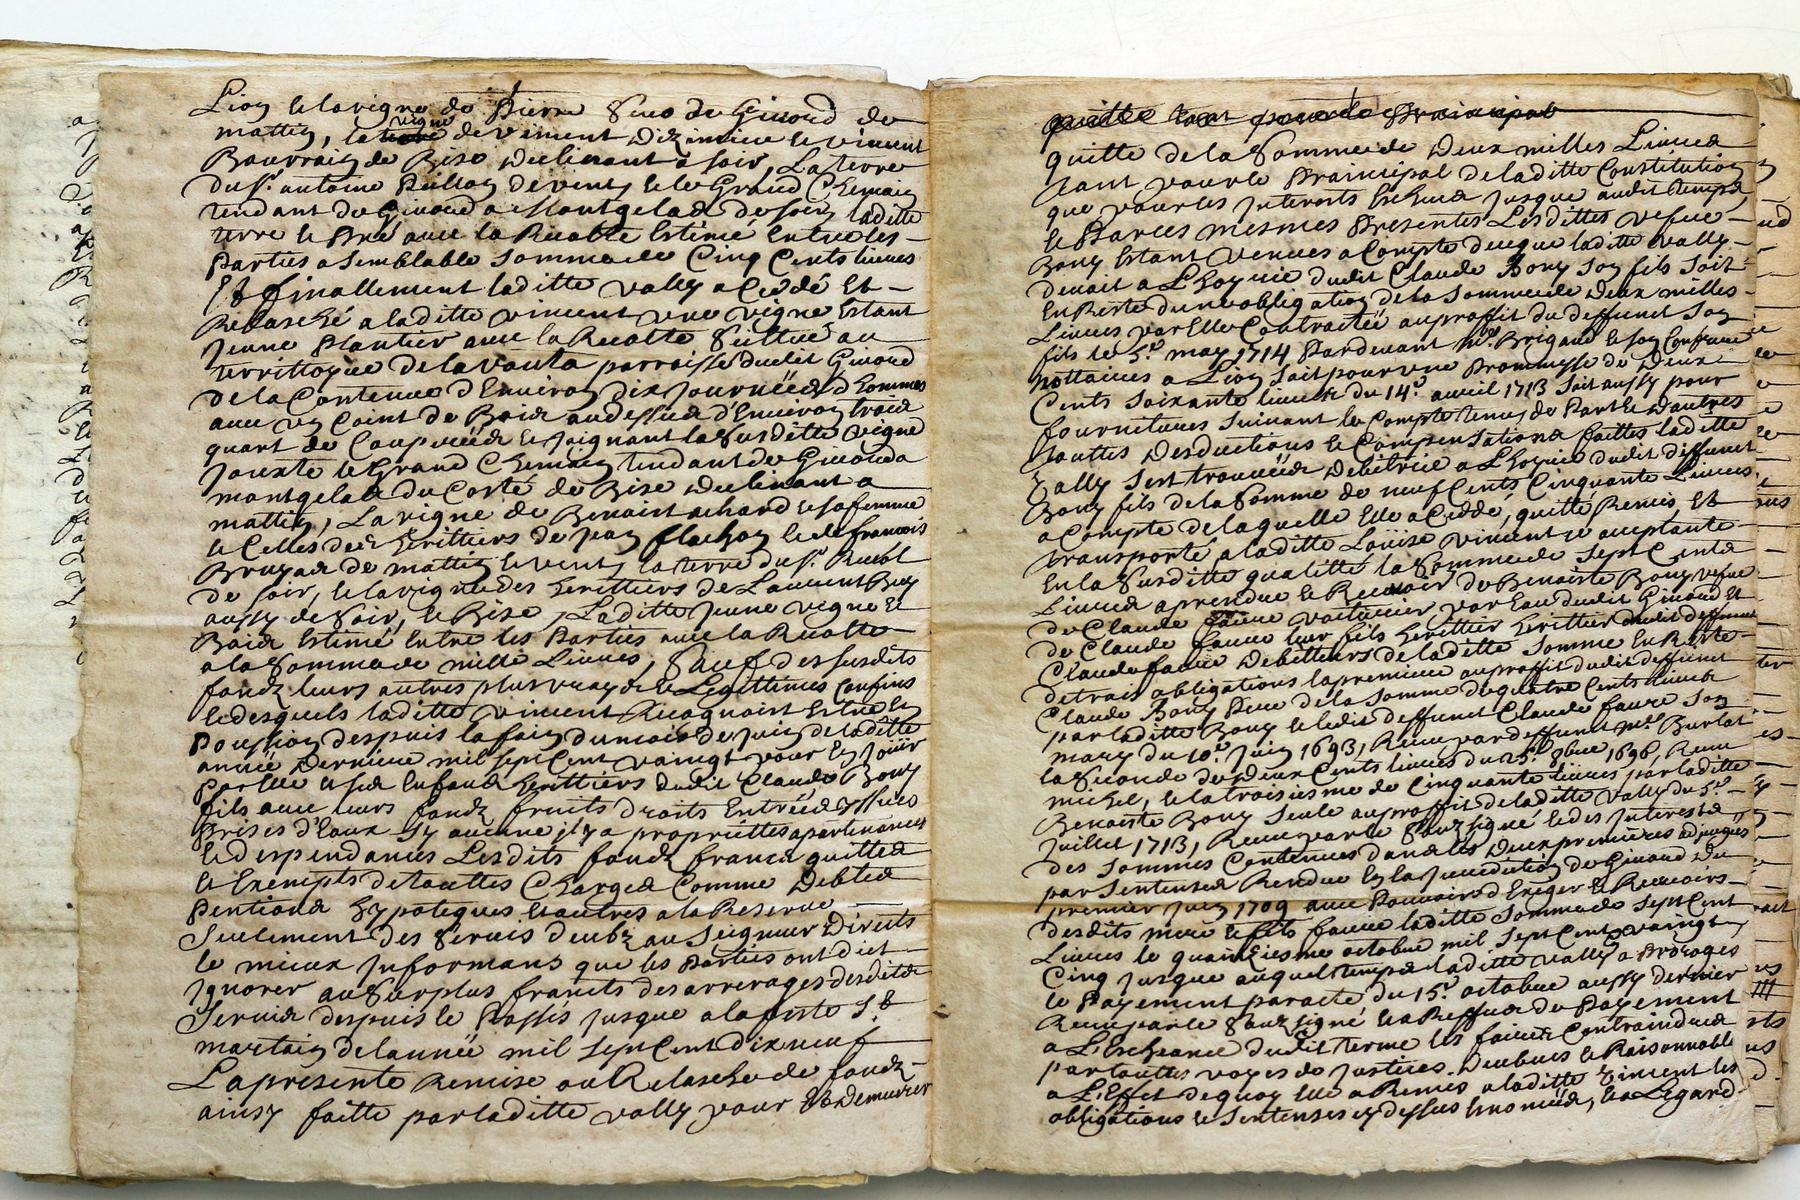 Lion le la vigne de Pierre de Givord de
mattin, la vigne de viment le vincent
de Bize declinant a soir, La terre
du Sr. antoine de vent, et le Grand Chemain
tendant de Givord a Montgelas de soir laditte
terre et Pré avec la Recolte Estimé Entre les
Parties a semblable somme de Cinq Cents livres
Et finallement laditte vally a Cedé Et
Relasché a laditte vincent une vigne Estant
Jeune Plantier avec la Recolte Scitué au
territtoire de la vauta parroisse dudit Givord
de la Contenue d'Environ dix Journéés d'hommes
avec un Coint de Bois au dessus d'Environ trois
quart de Coupéé et Joignant la Susditte vigne
Jouxte le Grand Chemain tendant de Givord a
montgelas du Costé de Bize declinant a
mattin, La vigne de Benoist achard et sa femme
et Celles des herittiers de Jean flachon et de francois
Bruyas de mattin et vent, la terre du Sr.
de soir, et la vigne des herittiers de Laurent
aussy de Soir, et Bize, Laditte Jeune vigne Et
Bois Estimé Entre les Parties avec la Recolte
a la Somme de mille Livres, Sauf des susdits
fondz leurs autres plus vrays et Legittimes Confins
desquels laditte vincent Recognoist Estre En
Possession despuis la fain du mois de Juin de laditte
année Derniere mil sept Cent vaingt pour En Jouir
par Elle et ses Enfans herittiers dudit Claude Bouy
fils avec leurs fondz fruits droits Entréés yssues
Prises d'Eaux sy aucune il y a propriettes apartenances
et despendances Lesdits fondz francs quittes
et Exempts de touttes Charges Comme Debtes
Pentions hypoteques Et autres a la Reserve
Seulement des Servis deubz au Seigneur Directs
le mieux Informans que les Parties ont dict
Ignorer au Surplus francts des arrerages desdits
Servis despuis le Passés jusque a la feste St.
martain de l'année mil sept Cent dix neuf
La presente Remise ou Relasche de fondz
ainsy faitte par laditte vally pour Et demeurer
quitte tant pour le Principal
quitte de la Somme de Deux milles Livres
tant pour le Prainsipal de laditte Constitution
que pour les Interests Escheus Jusque audit temps,
et Parces mesmes Presentes Lesdittes vefve
Bouy Estant venues a Compte de ce que laditte vally
devait a L'hoyrie dudit Claude Bouy son fils soit
En Reste d'une obligation de la Somme de Deux milles
Livres par Elle Contractéé au proffit du deffunct son
fils le 5e. may 1714 Pardevant Me. Brigand et son Confraire
nottaires a Lion soit pour une Promesse de Deux
Cents soixante livres du 14e. avril 1713 soit aussy pour
fournitures suivant le Compte tenus de Part et d'autres
touttes desductions et Compensations faittes laditte
vally s'est trouvéé debitrice a L'hoyrie dudit deffunct
Bouy fils de la Somme de neuf Cents Cinquante Livres
a Compte de laquelle Elle a Ceddé, quitté Remis, Et
transporté a laditte Louise vincent Je acceptante
En la Susditte qualitté la Somme de sept Cents
Livres a prendre et Recevoir de Benoiste Bouy vefve
de Claude faure voiturier par Eau dudit Givord Et
de Claude faure leur fils herittier herittier dudit deffunct
Claude faure Debitteurs de laditte Somme En Reste
de trois obligations la premiere au proffit dudit deffunct
Claude Bouy Pere de la somme de quatre Cents livres
par laditte Bouy et ledit deffunct Claude faure son
mary du 10e. Juin 1693, Receu par deffunct Me. Burlat
la Seconde de Deux Cents livres du 25e. 8bre 1696, Receu
michel, et la troisiesme de Cinquante livres par laditte
Benoiste Bouy Seule au proffit de laditte vally du 5e.
Juillet 1713, Receu par le Souzsigné et des Interests
des Sommes Contenues dans les deux premieres adjugéés
par Sentense Rendue En la Jurisdition de Givord du
premier Juin 1709 avec Pouvoir d'Exiger et Recevoirs
desdits mere et fils faure laditte Somme de sept Cent
Livres le quainziesme octobre mil sept Cent vaingt
Cinq Jusque auquel temps laditte vally a Prorogés
le Payement par acte du 15e. octobre aussy dernier
Receu par le Souz signé et a Reffus de Payement
a L'Escheance dudit terme les faire Contraindre
par touttes voyes de Justices. Deubues et Raisonnable
a L'Effet de quoy Elle a Remis a laditte vincent les
obligations et Sentenses cy dessus Enoncéés, et a L'Egard